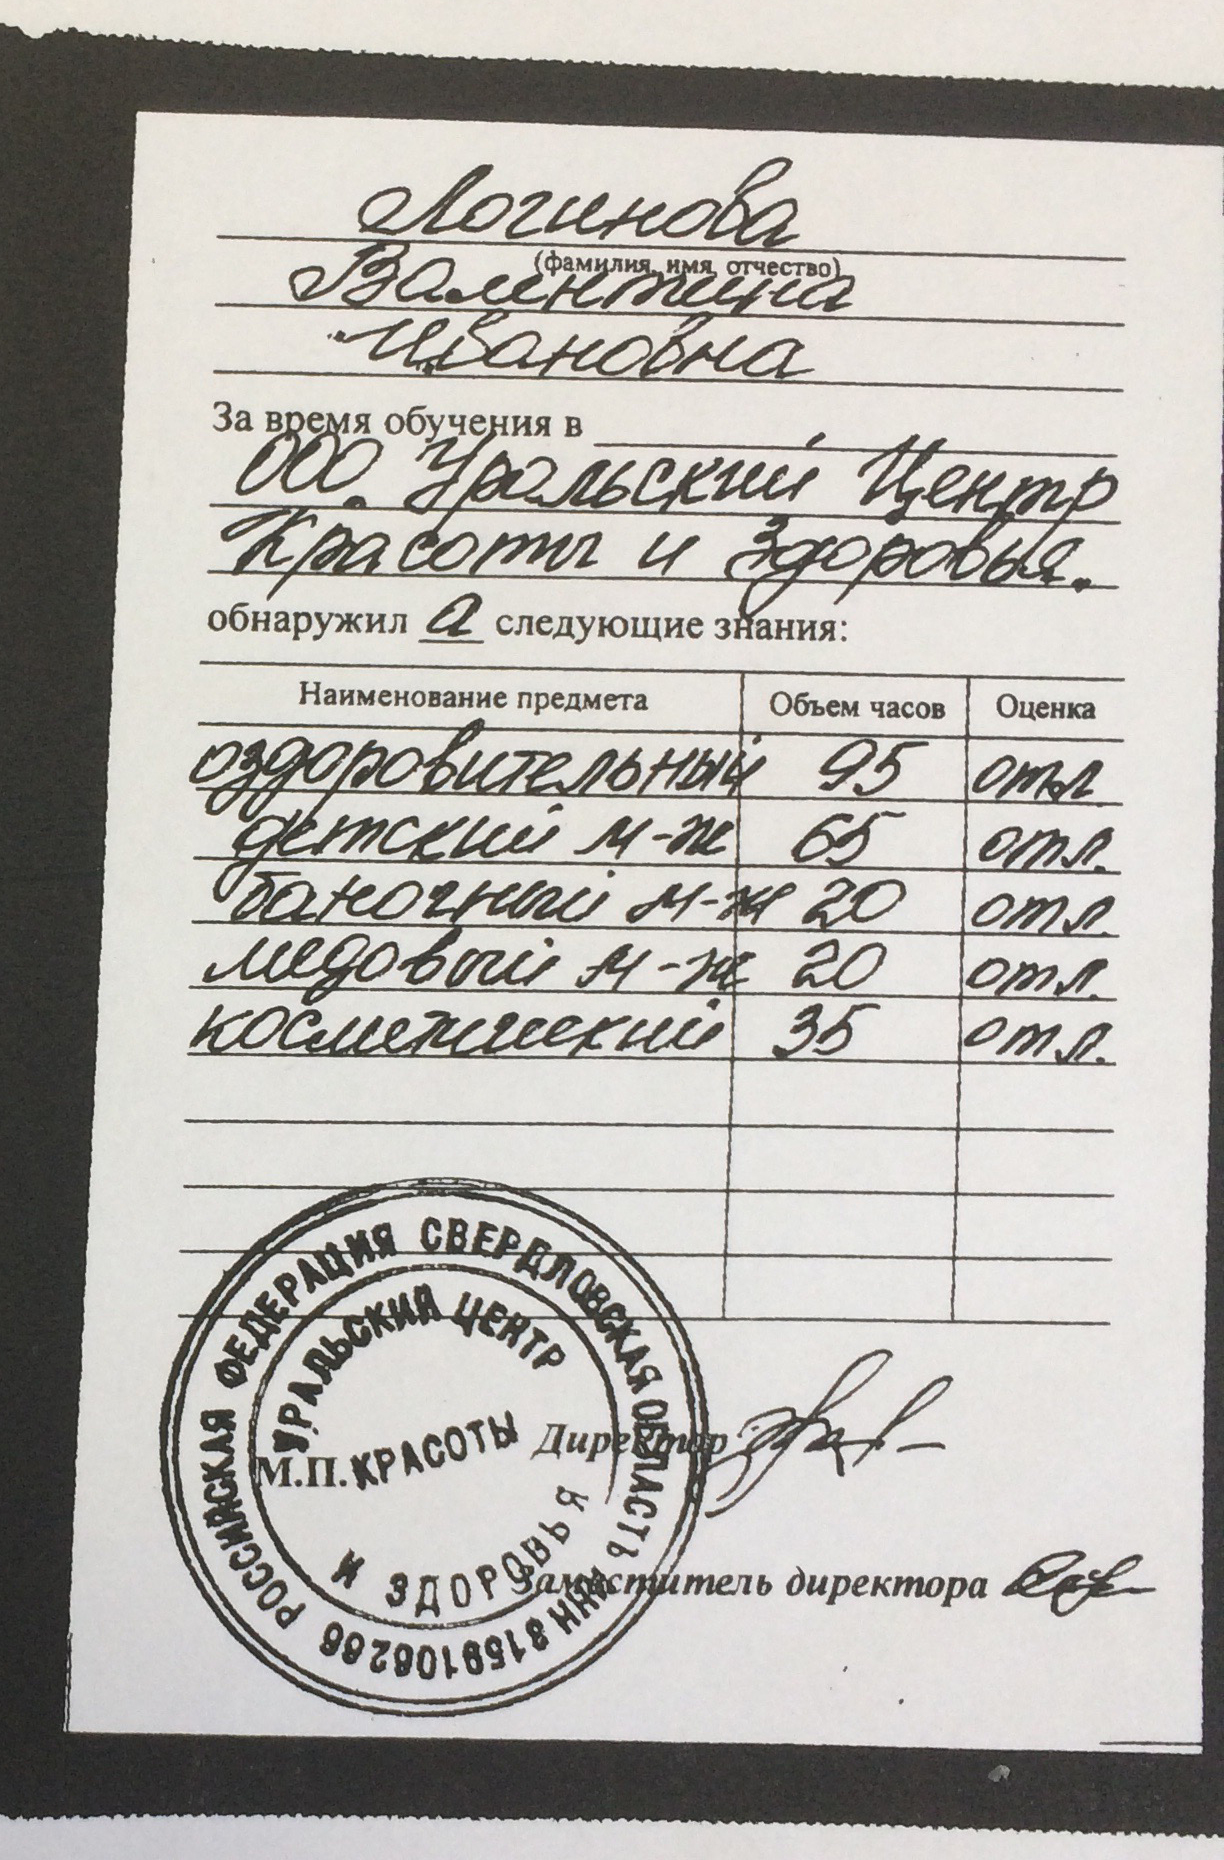 Логинова
(фамилия, имя, отчество)
Валентина
Ивановна
За время обучения в
ООО. Уральский Центр
Красоты и Здоровья.
обнаружил а следующие знания:
Наименование предмета Объем часов Оценка
оздоровительный 95 отл.
детский м-ж 65 отл.
баночный м-ж 20 отл.
медовый м-ж 20 отл.
косметический 35 отл.
РОССИЙСКАЯ ФЕДЕРАЦИЯ СВЕРДЛОВСКАЯ ОБЛАСТЬ ИНН
УРАЛЬСКИЙ ЦЕНТР
КРАСОТЫ
И ЗДОРОВЬЯ
М.П. Директор
Заместитель директора